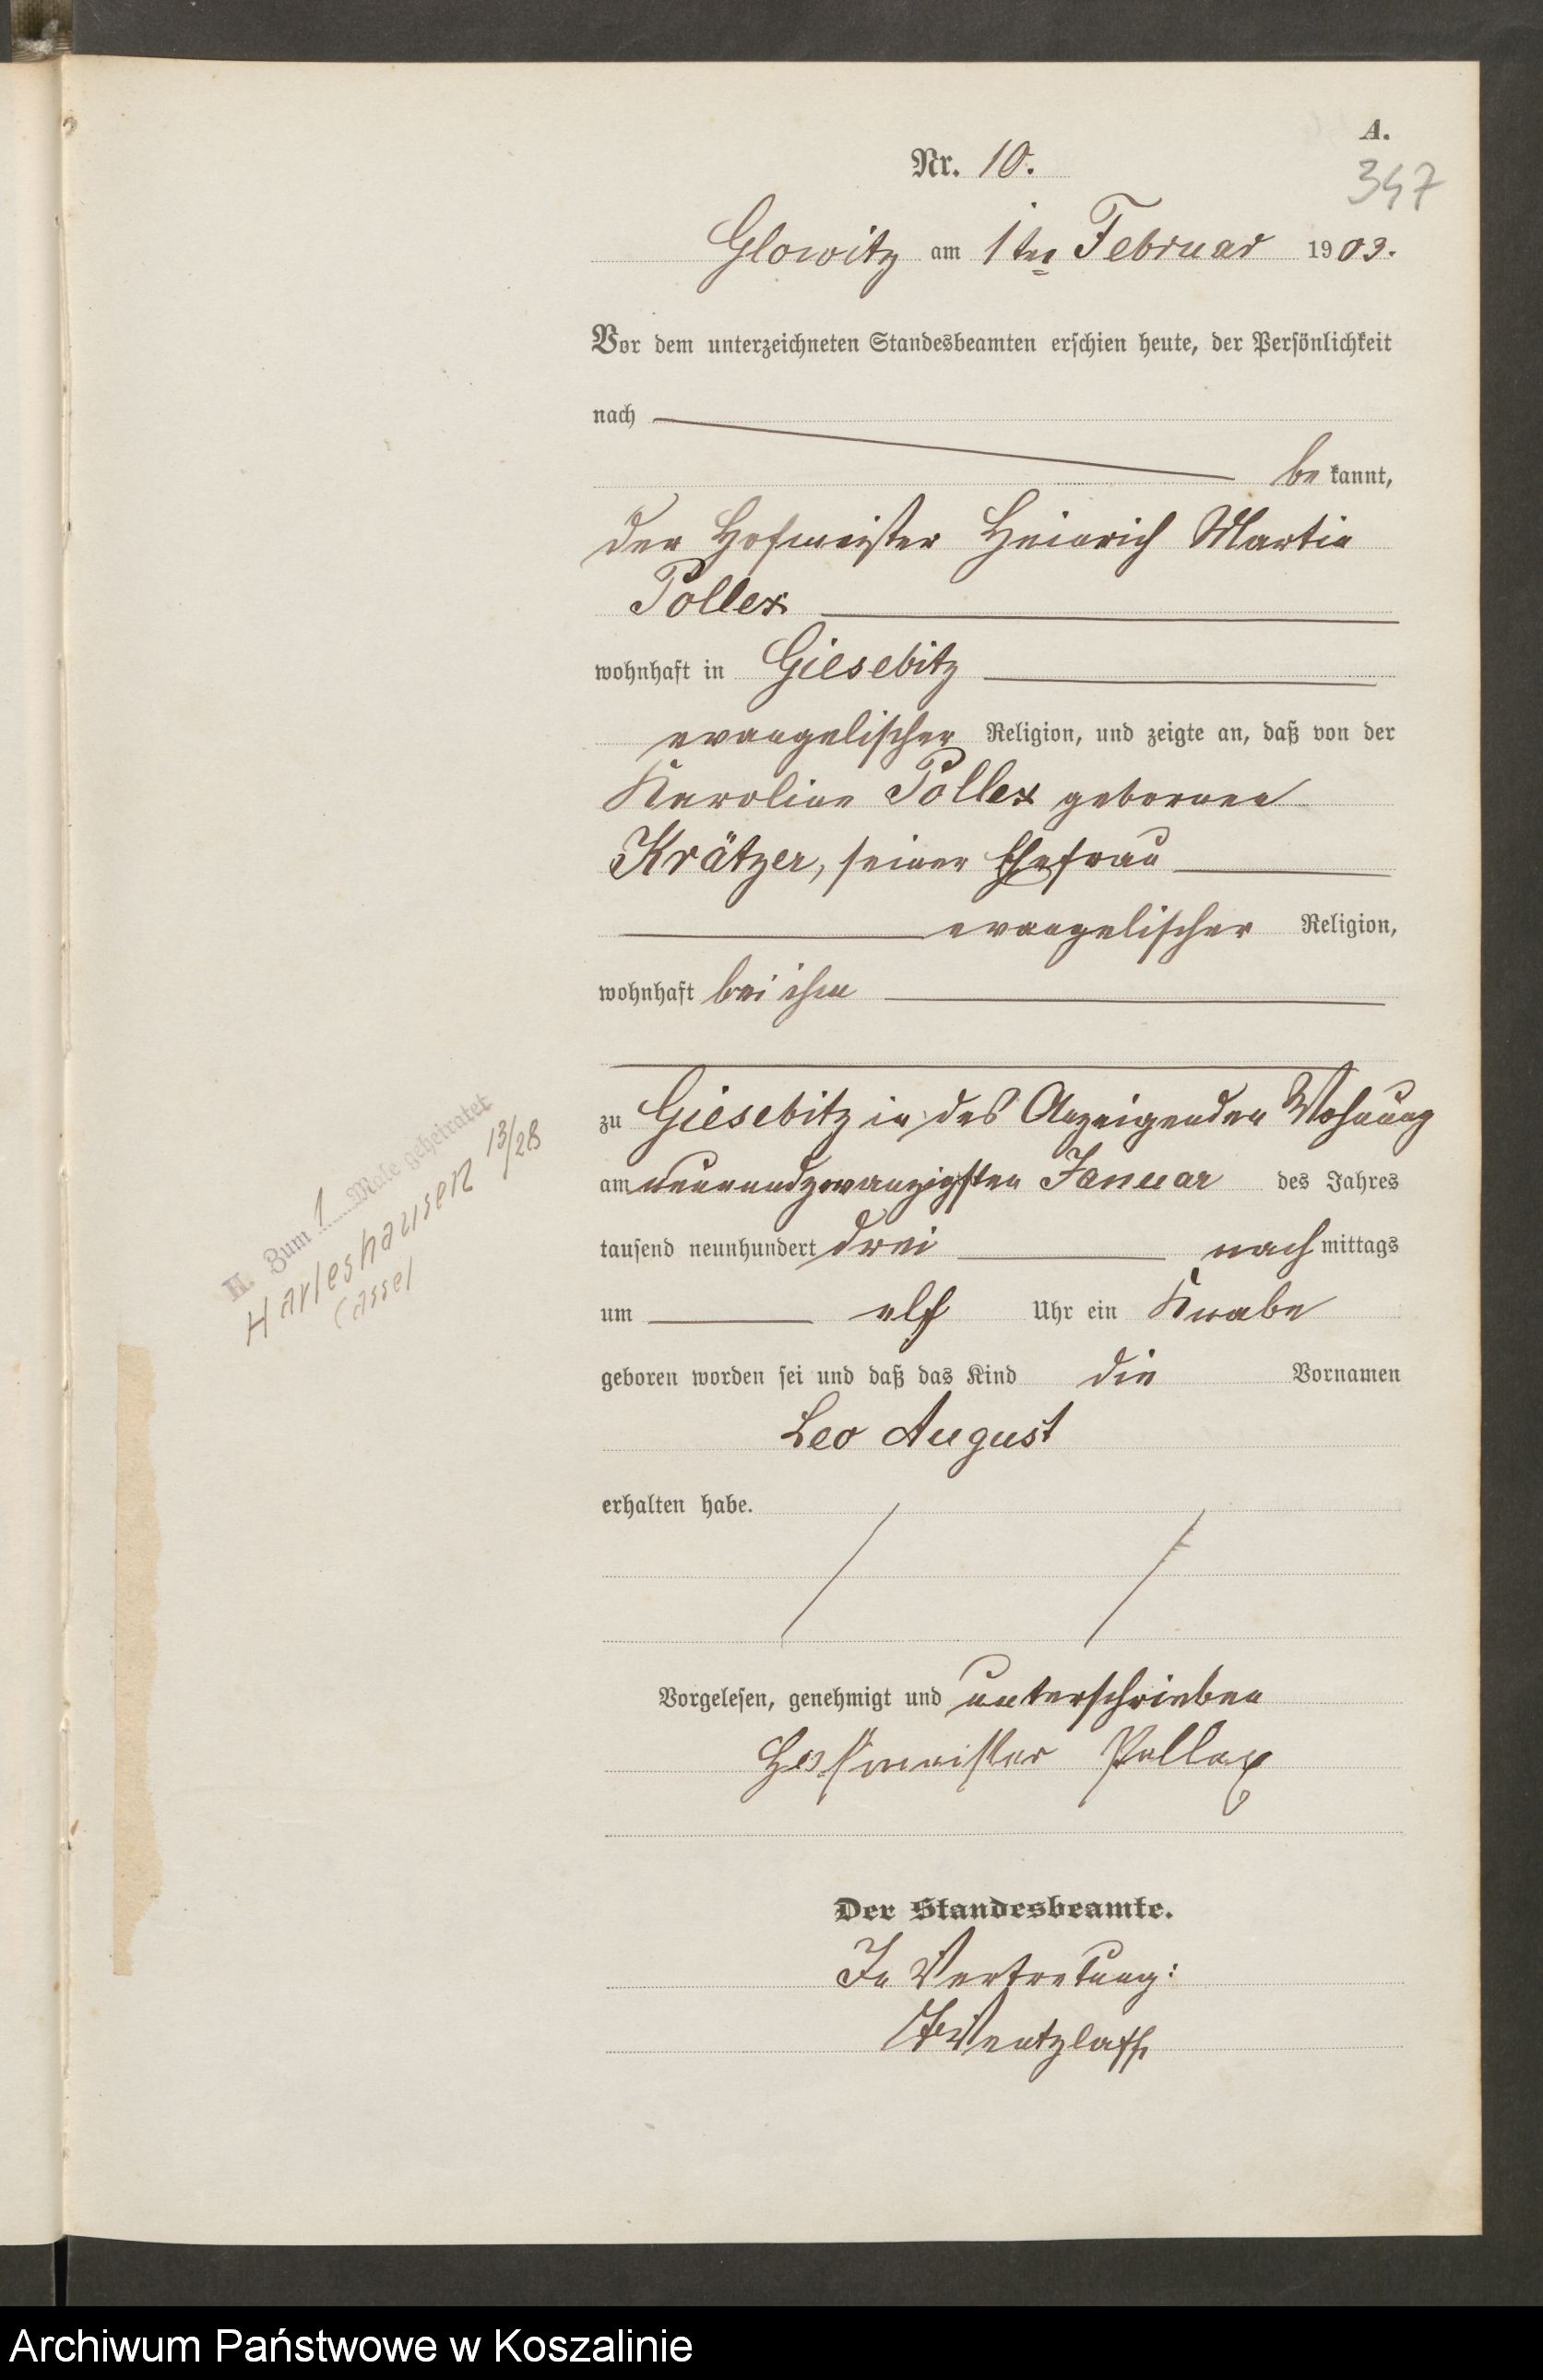 A.
Nr. 10.
347
Glowitz am 1ten Februar 1903.
Vor dem unterzeichneten Standesbeamten erschien heute, der Persönlichkeit
nach
be kannt,
der Hofmeister Heinrich Martin
Pollex
wohnhaft in Giesebitz
evangelischer Religion, und zeigte an, daß von der
Karoline Pollex geborenen
Krätzer, seiner Ehefrau
evangelischer Religion,
wohnhaft bei ihm
zu Giesebitz in des Anzeigenden Wohnung
am neunundzwanzigsten Januar des Jahres
tausend neunhundert drei nach mittags
um elf Uhr ein Knabe
geboren worden sei und daß das Kind die Vornamen
Leo August
erhalten habe.
Vorgelesen, genehmigt und unterschrieben
Hofmeister Pollex
Der Standesbeamte.
In Vertretung:
Wentzlaff
H. Zum 1 Male geheiratet
Harleshausen 13/28
Cassel
Archiwum Państwowe w Koszalinie